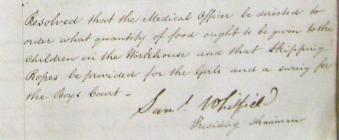 Resolved that the Medical Officer be directed to
order what quantity of food ought to be given to the
Children in the Workhouse and that Skipping
Ropes be provided for the Girls and a swing for
the Boys Court -
Saml. Whitfield
Presiding Chairman